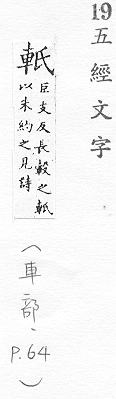 19 五經文字
軝
巨支反長轂之軝
以朱約之見詩
(車部、P.64)